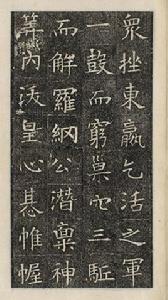 衆挫東羸乞活之軍
一鼓而窮巢穴三駈
而解羅網公潛稟神
筭內沃皇心惎帷幄